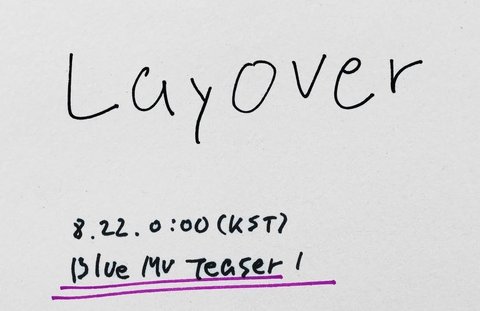 Layover
8.22. 0:00 (KST)
Blue MV Teaser 1